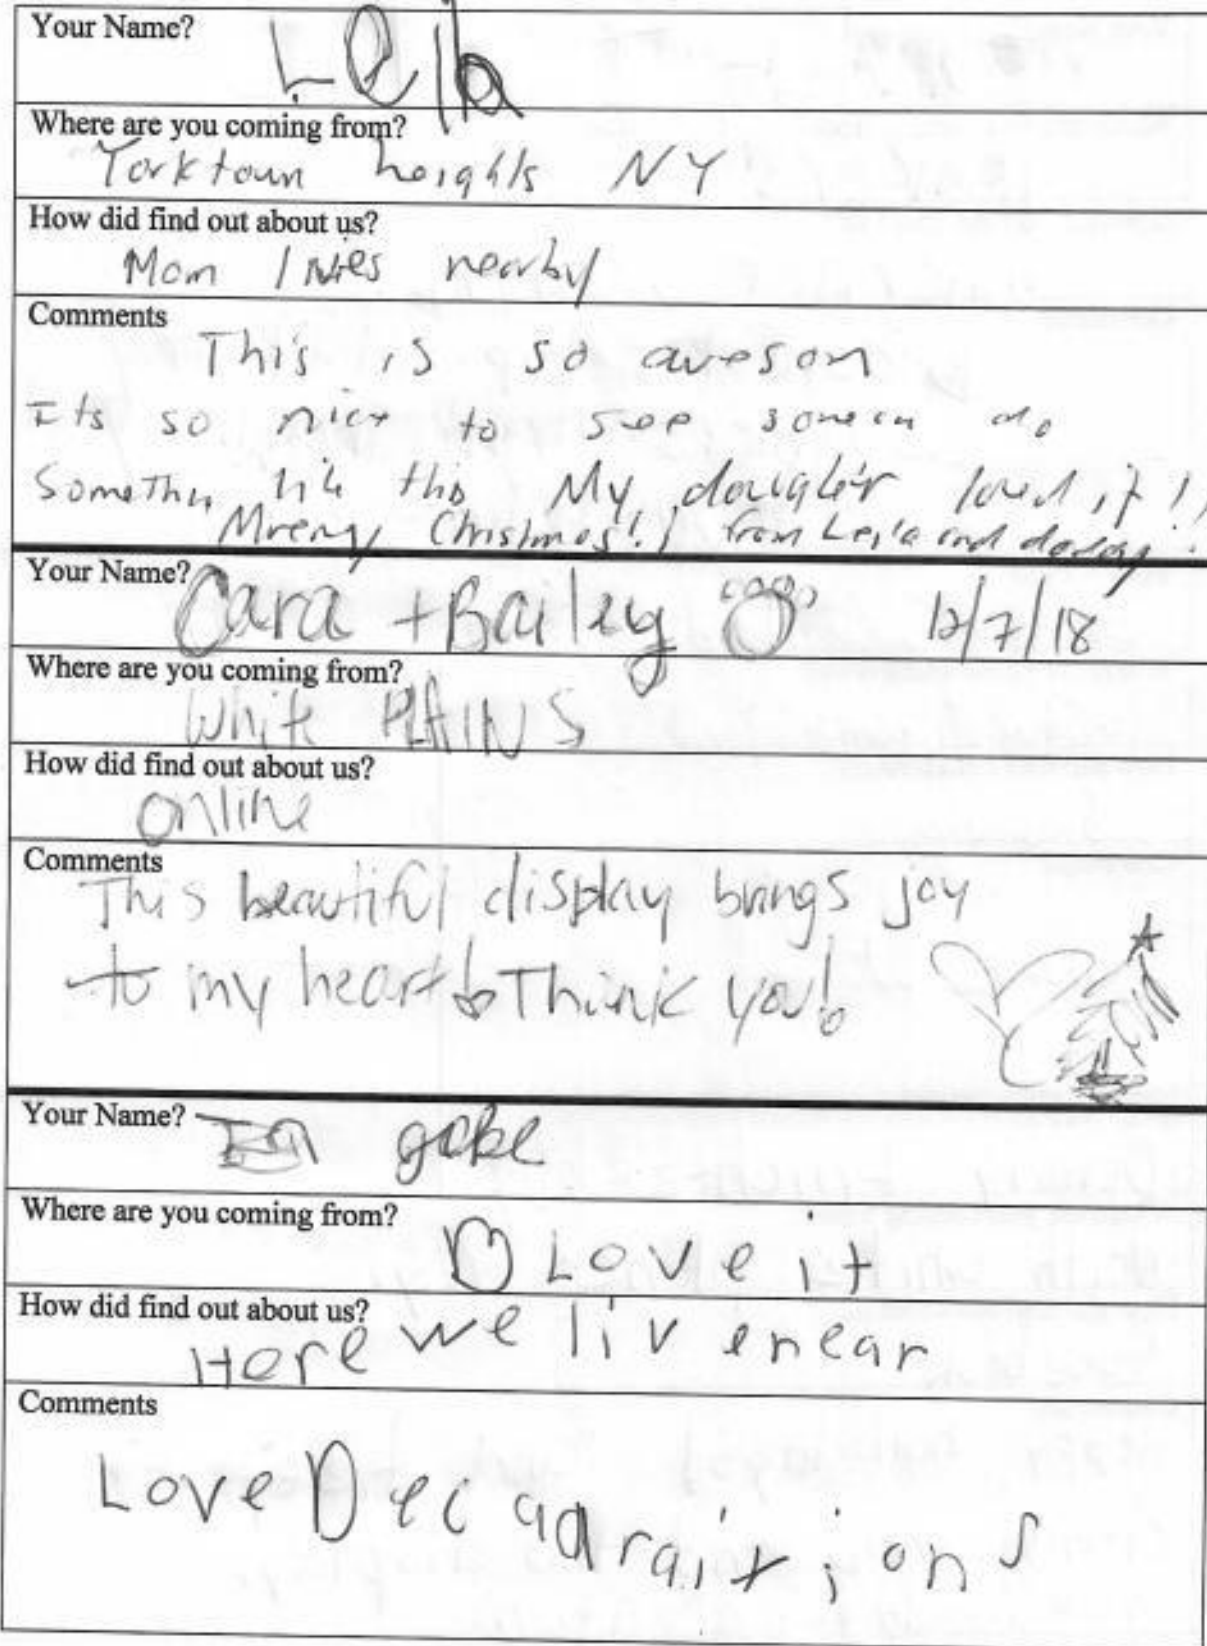 Your Name?
Leila
Where are you coming from?
Yorktown heights NY
How did find out about us?
Mom lives nearby
Comments
This is so aweson
Its so nice to see someon do
Somethin like this My daughter loved it!!
Christmas!! from Leila and daddy!
Your Name?
Cara + Bailey 12/7/18
Where are you coming from?
White PLAINS
How did find out about us?
online
Comments
This beautiful display brings joy
to my heart! Thank you!
Your Name?
gabe
Where are you coming from?
Love it
How did find out about us?
Here we liv enear
Comments
Love Decadraitions